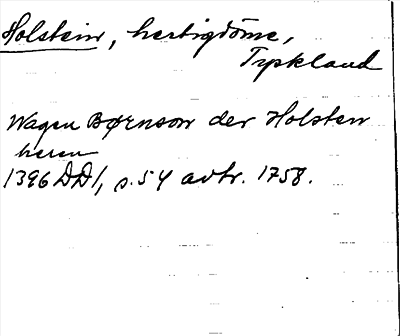 Holstein, hertigdöme,
Tyskland
Wagen Børnson der Holsten
heren
1396 DD1, s.54 avtr. 1758.